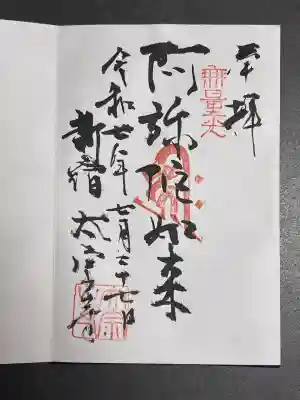 奉拝
無量光
阿弥陀如来
令和七年七月二十七日
新宿 太宗寺